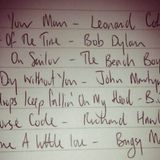 Your Man - Leonard Co
Of The Time - Bob Dylan
On Sailor - The Beach Boy
Day Without You - John Marty
ops Keep Fallin' On My Head - B
orse Code - Richard Hawl
me A Little love - Bugsy M